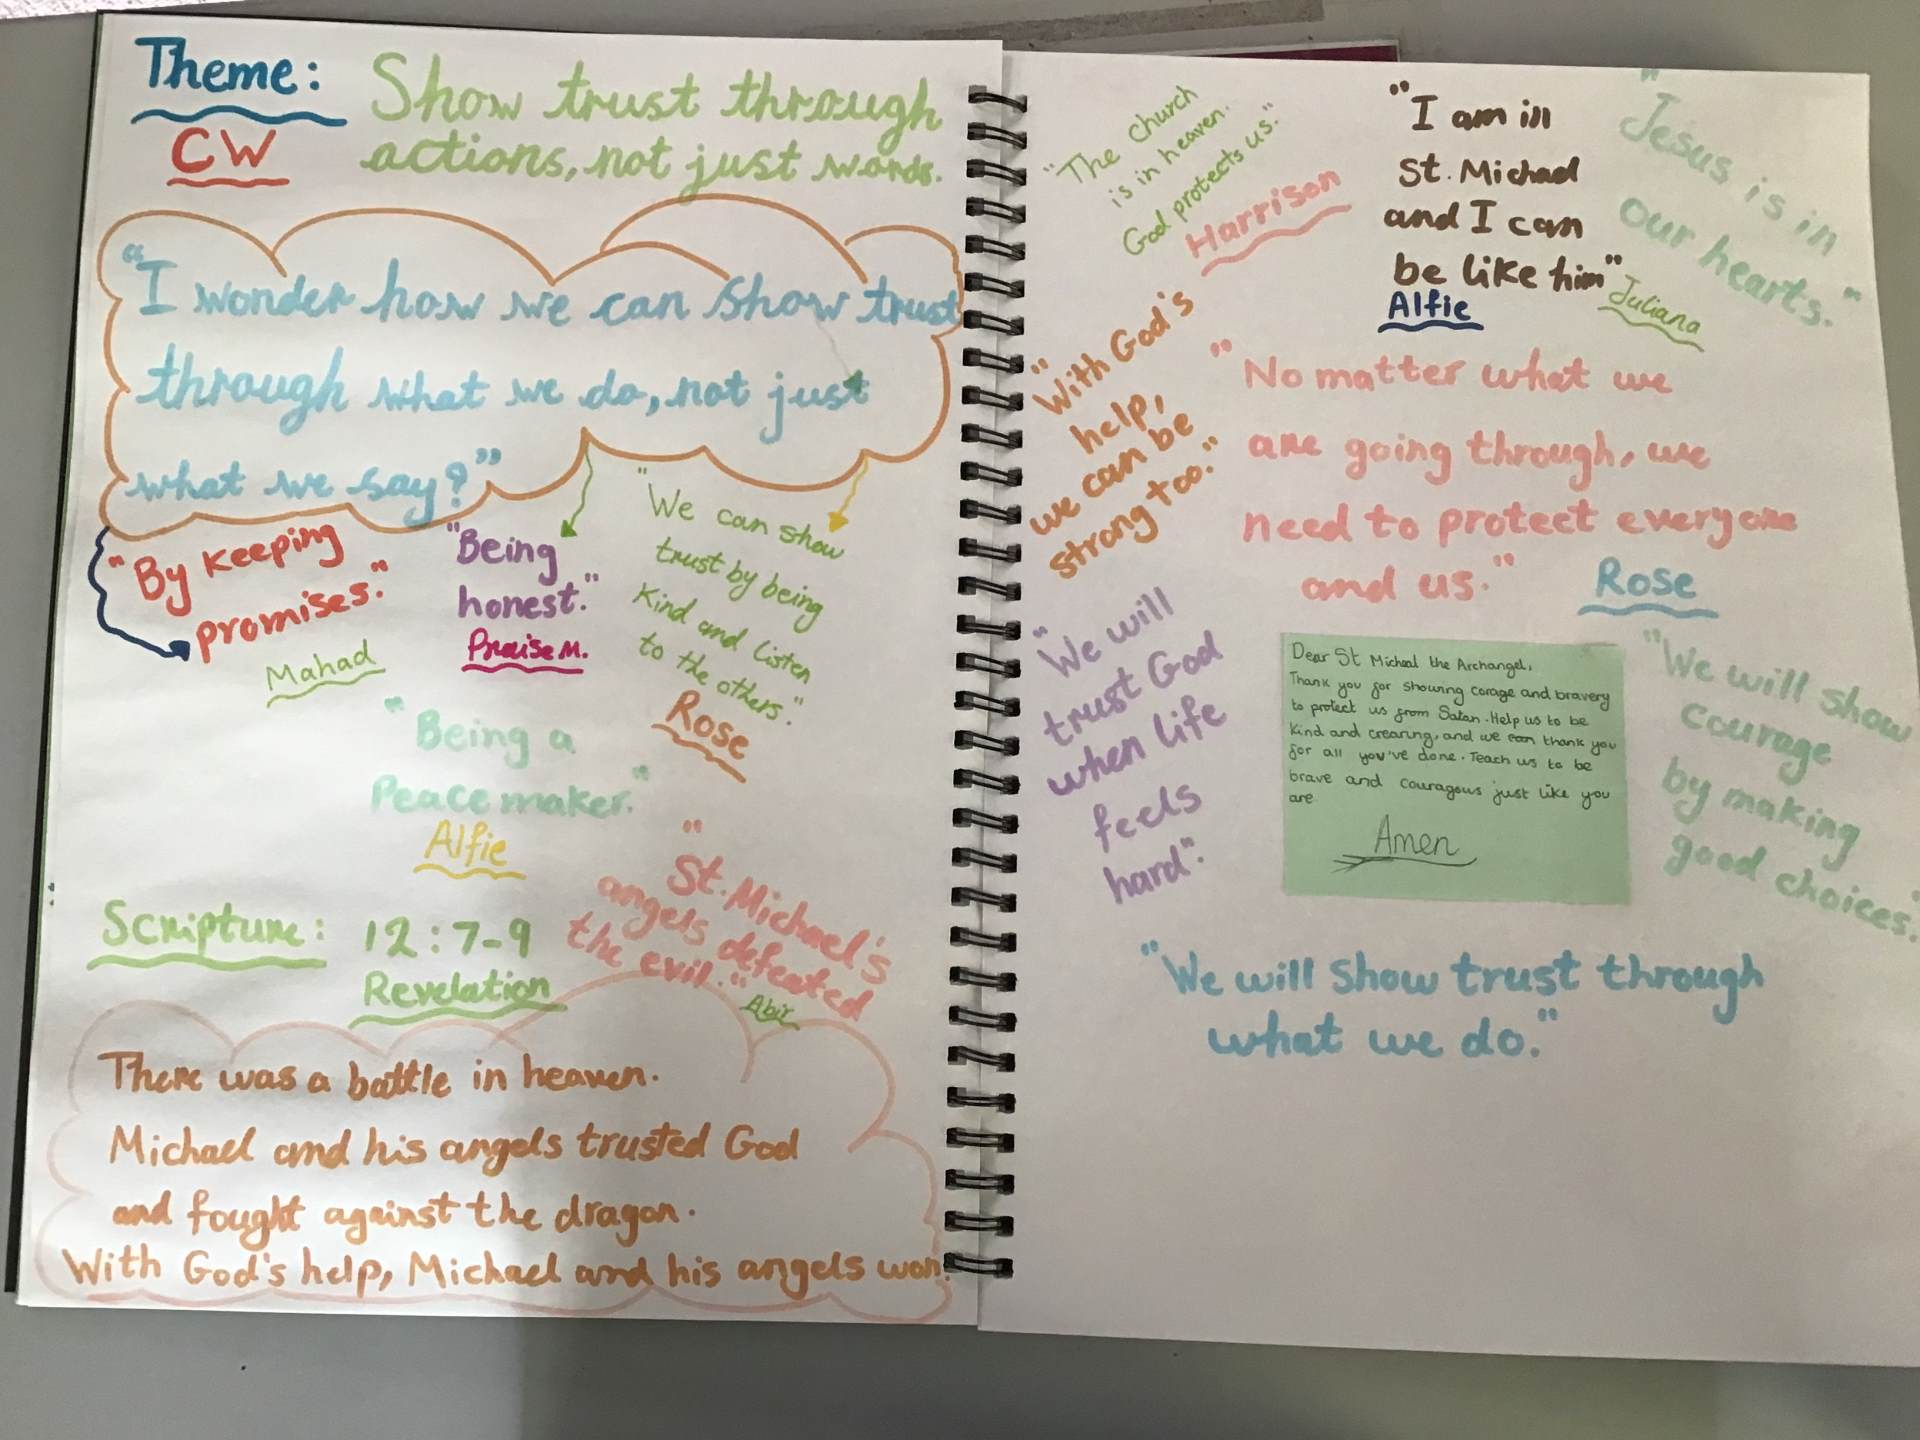 Theme:
CW
Show trust through
actions, not just words.
"I wonder how we can show trust
through what we do, not just
what we say?"
"By keeping
promises."
Mahad
"Being
honest."
Praise M.
"We can show
trust by being
Kind and listen
to the others."
Rose
"Being a
Peace maker."
Alfie
Scripture: 12:7-9
Revelation
"St. Michael's
angels defeated
the evil."
Abir
There was a battle in heaven.
Michael and his angels trusted God
and fought against the dragon.
With God's help, Michael and his angels won.
"The church
is in heaven.
God protects us."
Harrison
"I am ill
St. Michael
and I can
be like him"
Alfie
"Jesus is in
our hearts."
Juliana
"With God's
help,
we can be
strong too."
"No matter what we
are going through, we
need to protect everyone
and us."
Rose
"We will
trust God
when life
feels
hard".
Dear St Micheal the Archangel,
Thank you for showing corage and bravery
to protect us from Satan. Help us to be
kind and crearing, and we can thank you
for all you've done. Teach us to be
brave and couragous just like you
are
Amen
"We will show
courage
by making
good choices."
"We will show trust through
what we do."